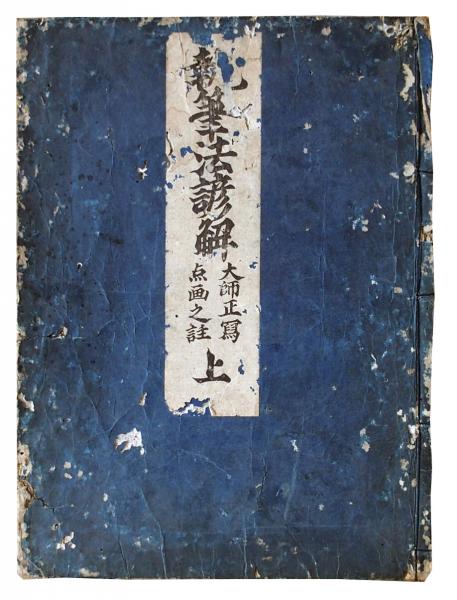 執筆法諺解
大師正寫
点画之註
上